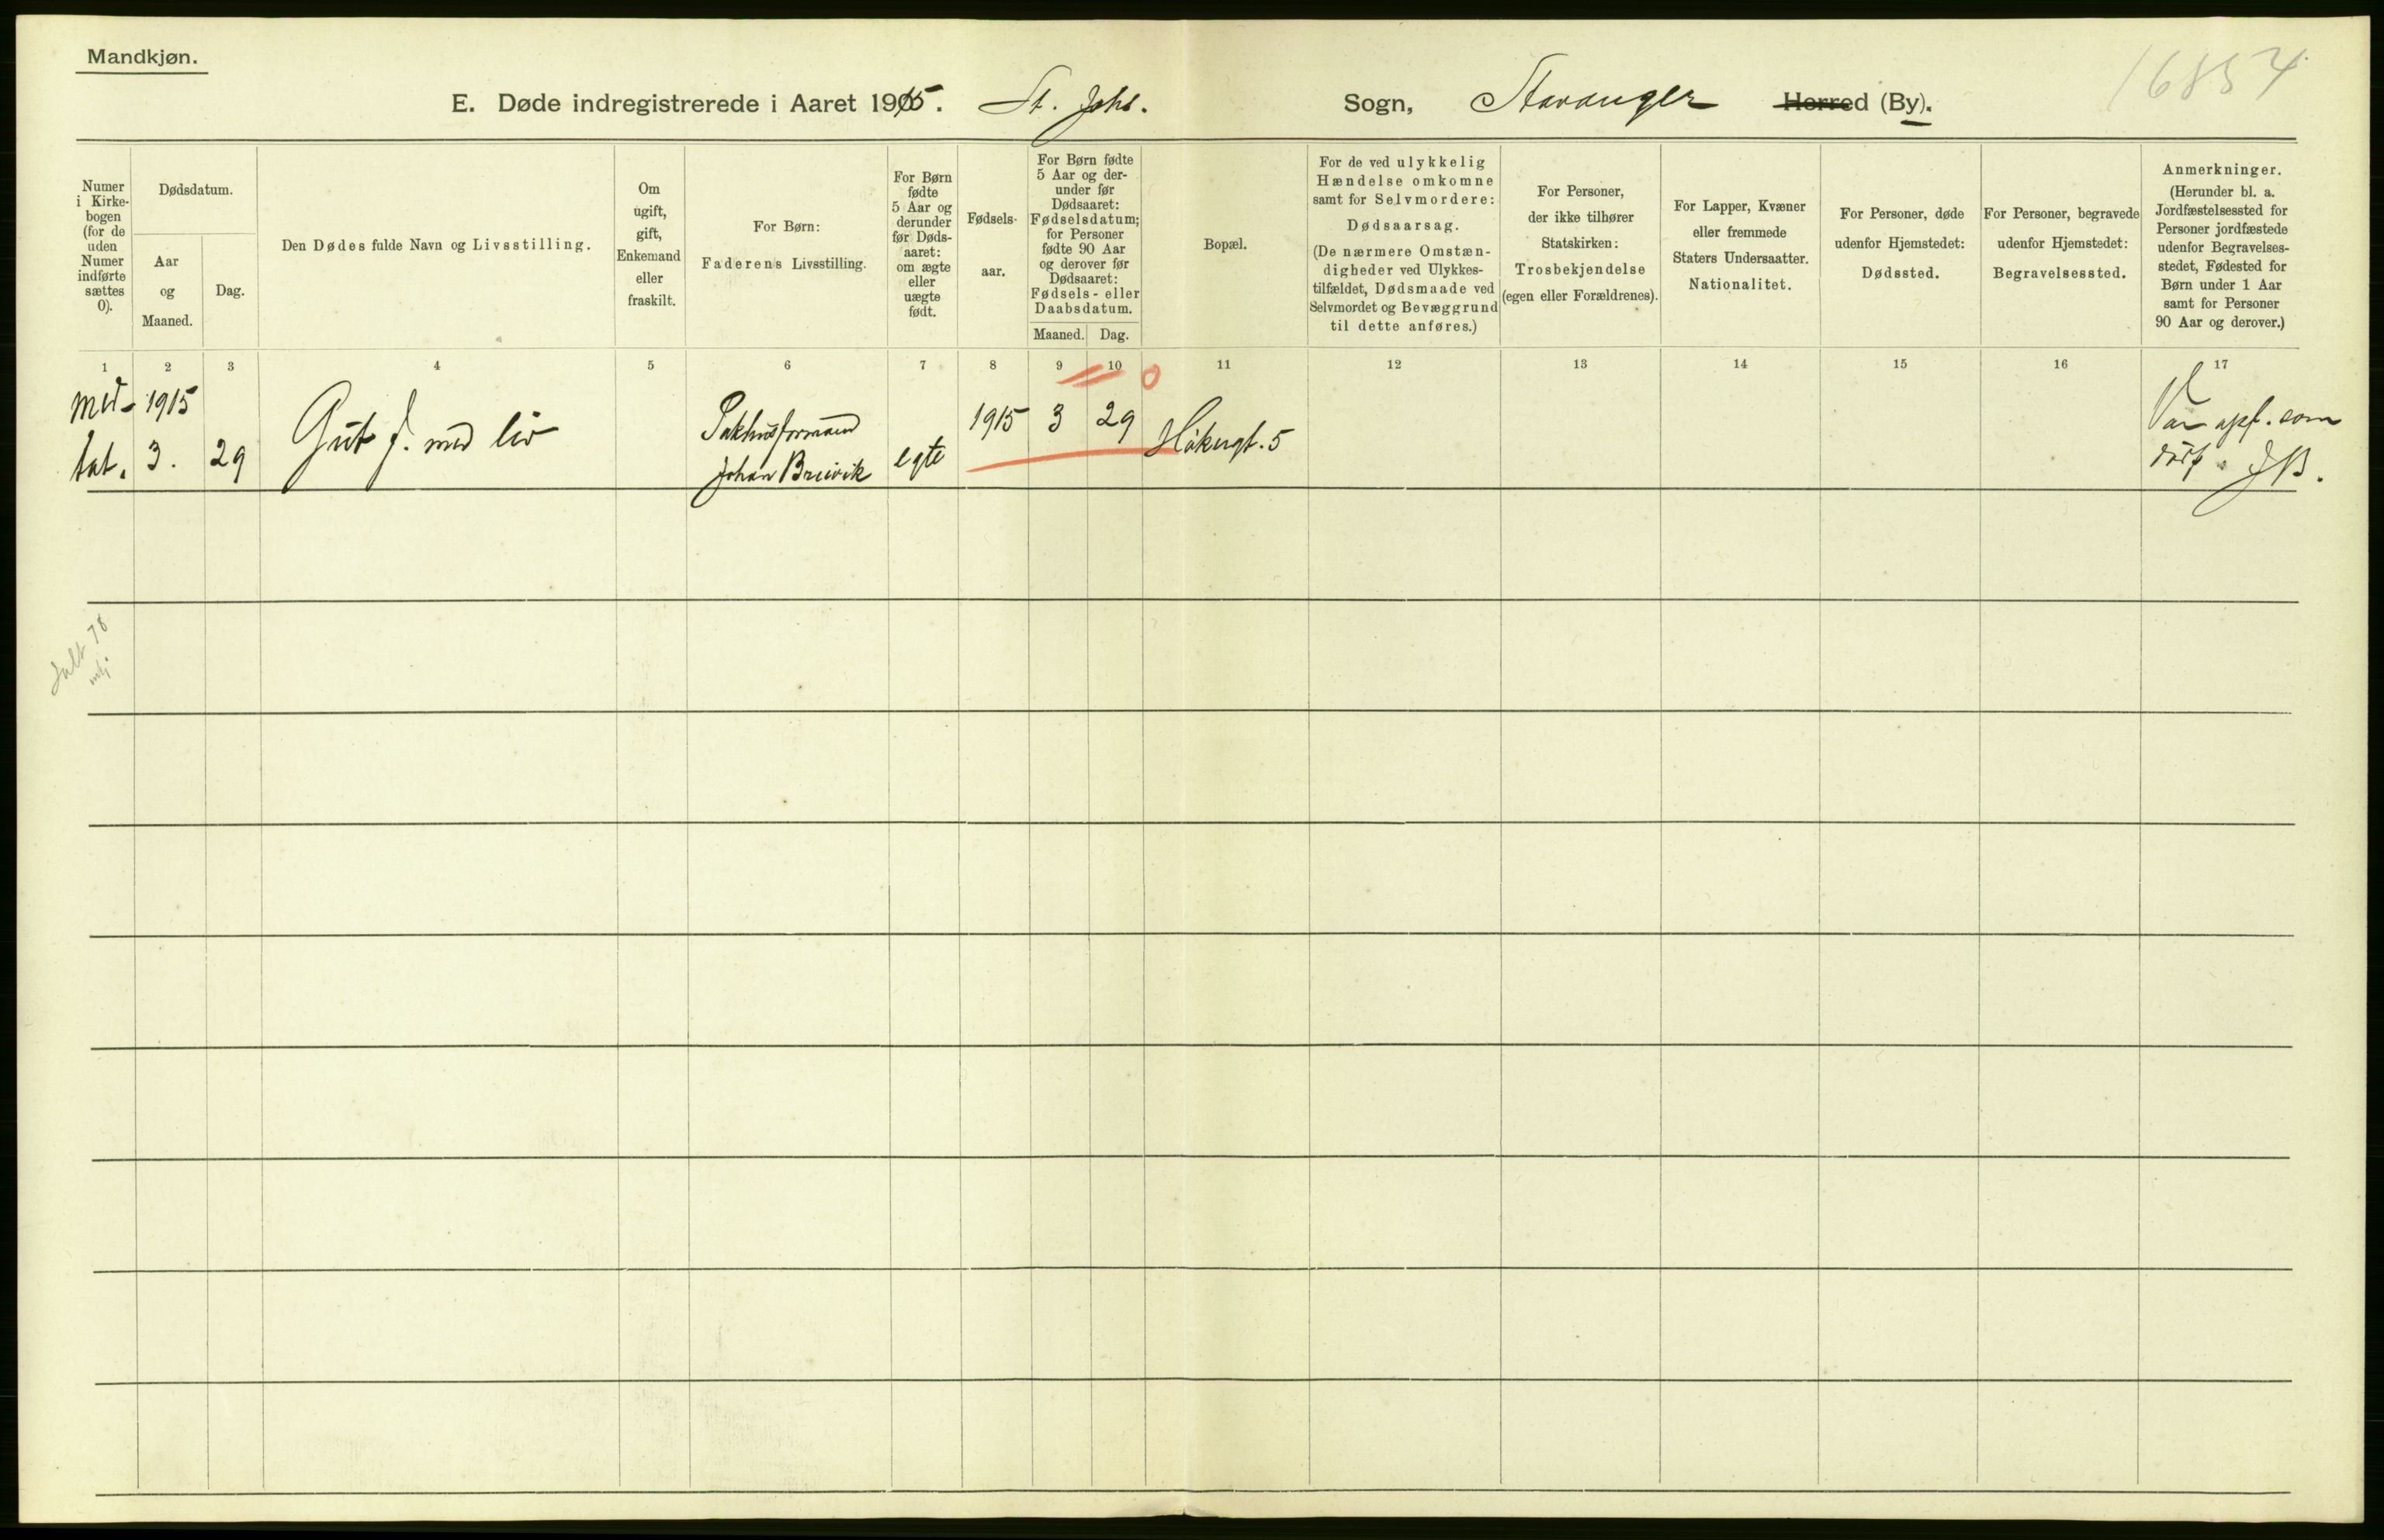 Mandkjøn.
16854
E. Døde indregistrerede i Aaret 1915. St. Johs. Sogn, Stavanger Herred (By).
Numer
i Kirke-
bogen
(for de
uden
Numer
indførte
sættes
0).
Dødsdatum.
Aar
og
Maaned.
Dag.
Den Dødes fulde Navn og Livsstilling.
Om
ugift,
gift,
Enkemand
eller
fraskilt.
For Børn:
Faderens Livsstilling.
For Børn
fødte
5 Aar og
derunder
før Døds-
aaret:
om ægte
eller
uægte
født.
Fødsels-
aar.
For Børn fødte
5 Aar og der-
under før
Dødsaaret:
Fødselsdatum;
for Personer
fødte 90 Aar
og derover før
Dødsaaret:
Fødsels- eller
Daabsdatum.
Maaned. Dag.
Bopæl.
For de ved ulykkelig
Hændelse omkomne
samt for Selvmordere:
Dødsaarsag.
(De nærmere Omstæn-
digheder ved Ulykkes-
tilfældet, Dødsmaade ved
Selvmordet og Bevæggrund
til dette anføres.)
For Personer,
der ikke tilhører
Statskirken:
Trosbekjendelse
(egen eller Forældrenes).
For Lapper, Kvæner
eller fremmede
Staters Undersaatter.
Nationalitet.
For Personer, døde
udenfor Hjemstedet:
Dødssted.
For Personer, begravede
udenfor Hjemstedet:
Begravelsessted.
Anmerkninger.
(Herunder bl. a.
Jordfæstelsessted for
Personer jordfæstede
udenfor Begravelses-
stedet, Fødested for
Børn under 1 Aar
samt for Personer
90 Aar og derover.)
1 2 3 4 5 6 7 8 9 10 11 12 13 14 15 16 17
0
1915
3. 29
Gut f. med liv
Pakhusformand
Johan Breivik
egte
1915 3 29
Håkongt. 5
Var opf. som
dødf. JB.
Ialt 78